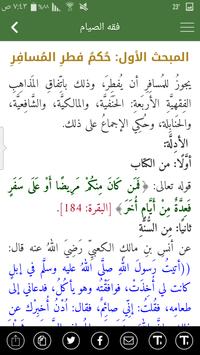 23° ٨٨٪ ٧:٤٣ ص
فقه الصيام
المبحث الأول: حُكمُ فطرِ المُسافِرِ
يجوزُ للمُسافِرِ أن يُفطِرَ، وذلك باتِّفاقِ المَذاهِبِ
الفِقهيَّةِ الأربعةِ: الحَنَفيَّة، والمالكيَّة، والشَّافعيَّة،
والحَنابلة، وحُكِي الإجماعُ على ذلك
الأدِلَّة:
أوَّلًا: من الكتاب
قوله تعالى: ﴿فَمَن كَانَ مِنكُمْ مَرِيضًا أَوْ عَلَى سَفَرٍ
فَعِدَّةٌ مِنْ أَيَّامٍ أُخَرَ﴾ [البقرة: 184].
ثانيًا: من السُّنَّةِ
عن أنسِ بنِ مالكٍ الكعبيِّ رَضِيَ اللهُ عنه قال:
((أتيتُ رسولَ اللهِ صلَّى اللهُ عليه وسلَّم في إبلٍ
كانت لي أُخِذَت، فوافَقْتُه وهو يأكُلُ، فدعاني إلى
طعامِه، فقُلتُ: إنِّي صائِمٌ، فقال: ادْنُ أُخبِرْك عن